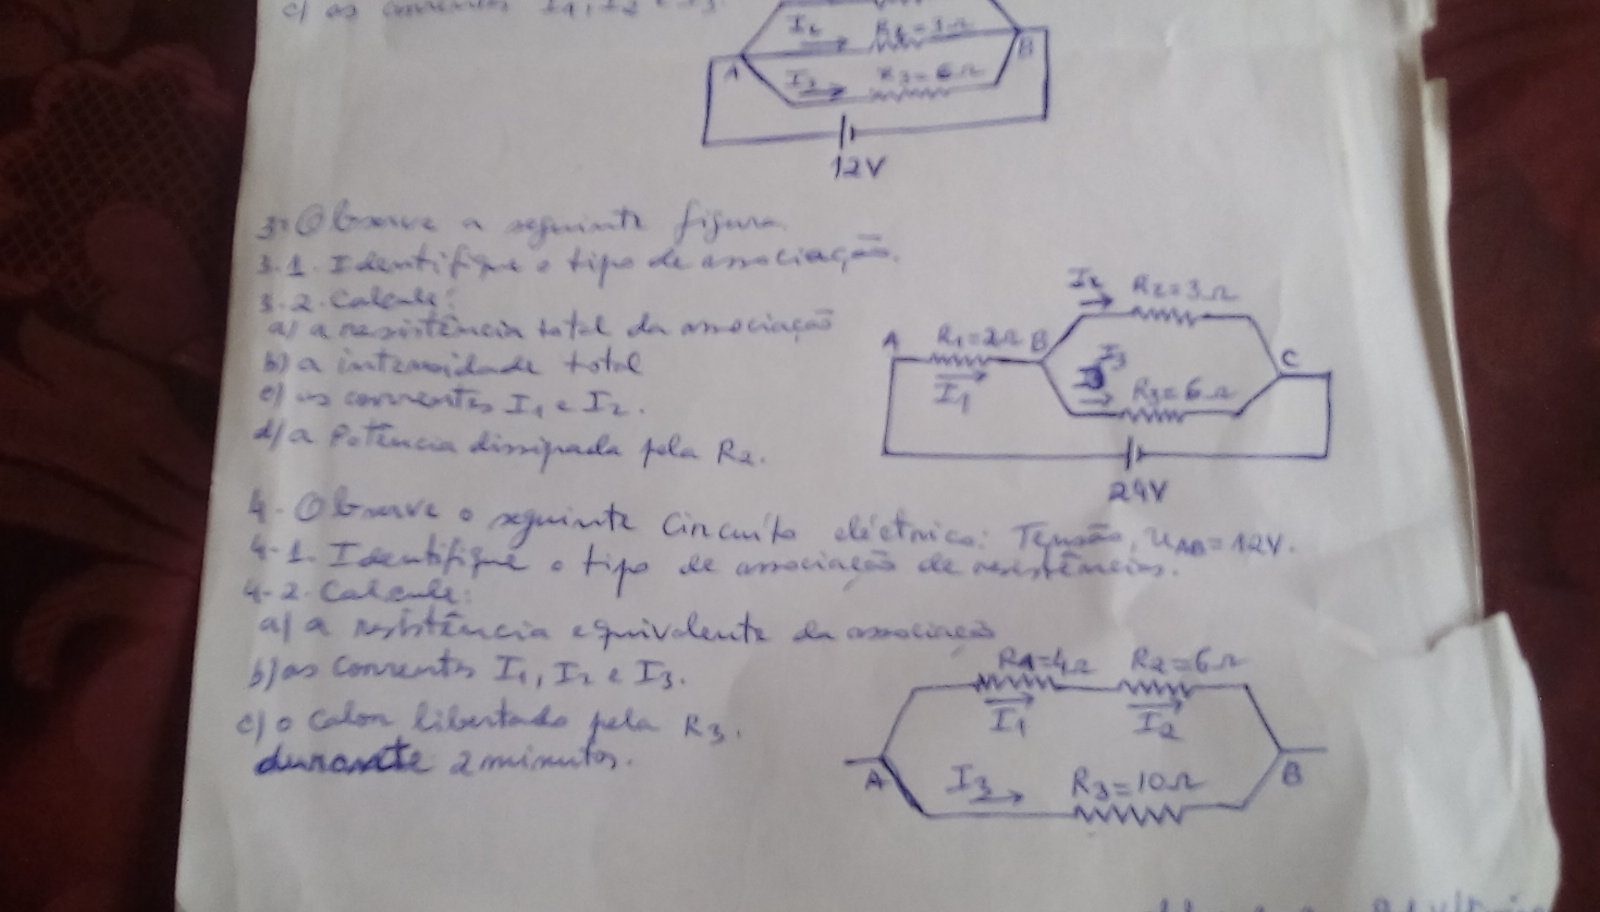 c) as correntes I1, I2 e I3.
I2 R2=3Ω
A B
I3 R3=6Ω
12V
3. Observe a seguinte figura.
3.1. Identifique o tipo de associação.
3.2. Calcule:
a) a resistência total da associação
b) a intensidade total
c) as correntes I1 e I2.
d) a Potência dissipada pela R2.
I2 R2=3Ω
A R1=2Ω B I3 C
I1 R3=6Ω
24V
4. Observe o seguinte Circuito eléctrico: Tensão, UAB=12V.
4.1. Identifique o tipo de associação de resistências.
4.2. Calcule:
a) a resistência equivalente da associação
b) as correntes I1, I2 e I3.
c) o calor libertado pela R3.
durante 2 minutos.
R1=4Ω R2=6Ω
I1 I2
A I3 R3=10Ω B